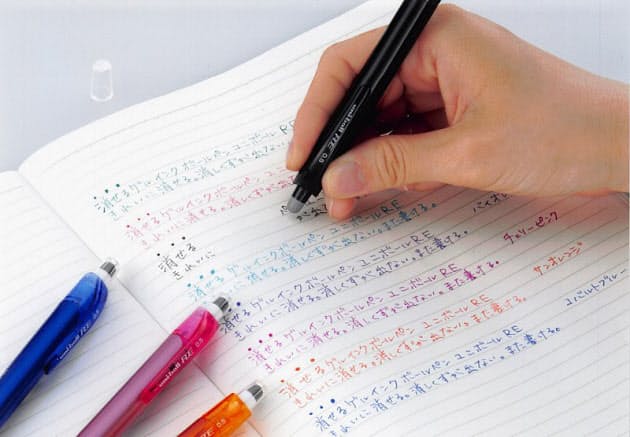 消せるゲルインクボールペン ユニボールRE
きれいに消せる。消しくずが
消せるゲルインクボールペン
きれいに消せる。消しくずが出な
消せる
きれいに
消せるゲルインクボールペン ユニボールRE
きれいに消せる。消しくずが出ない。また書ける。
バイオ
消せるゲルインクボールペン ユニボールRE
きれいに消せる。消しくずが出ない。また書ける。
チェリーピンク
消せるゲルインクボールペン ユニボールRE
きれいに消せる。消しくずが出ない。また書ける。
サンオレンジ
消せるゲルインクボールペン ユニボールRE
きれいに消せる。消しくずが出ない。また書ける。
コバルトブルー
消せるゲルインクボールペン ユニボールRE
きれいに消せる。消しくずが出ない。また書ける。
uni-ball R:E 0.5
uni-ball R:E 0.5
uni-ball R:E 0.5
R:E 0.5